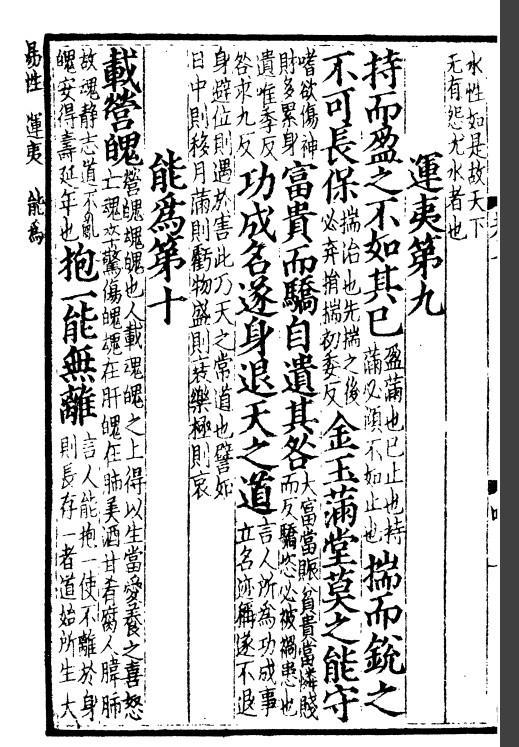 水性如是故天下
无有怨尤水者也
運夷第九
持而盈之不如其已
盈滿也已止也持
滿必傾不如止也
揣而銳之
不可長保
揣治也先揣之後
必弃捐揣初委反
金玉滿堂莫之能守
嗜欲傷神
財多累身
富貴而驕自遺其咎
夫富當賑貧貴當憐賤
而反驕恣必被禍患也
遺唯季反
咎求九反
功成名遂身退天之道
言人所為功成事
立名迹稱遂不退
身避位則遇於害此乃天之常道也譬如
日中則移月滿則虧物盛則衰樂極則哀
能為第十
載營魄
營魄魂魄也人載魂魄之上得以生當愛養之喜怒
亡魂卒驚傷魄魂在肝魄在肺美酒甘肴腐人肺
故魂静志道不亂
魄安得壽延年也
抱一能無離
言人能抱一使不離於身
則長存一者道始所生大
易性 運夷 能為